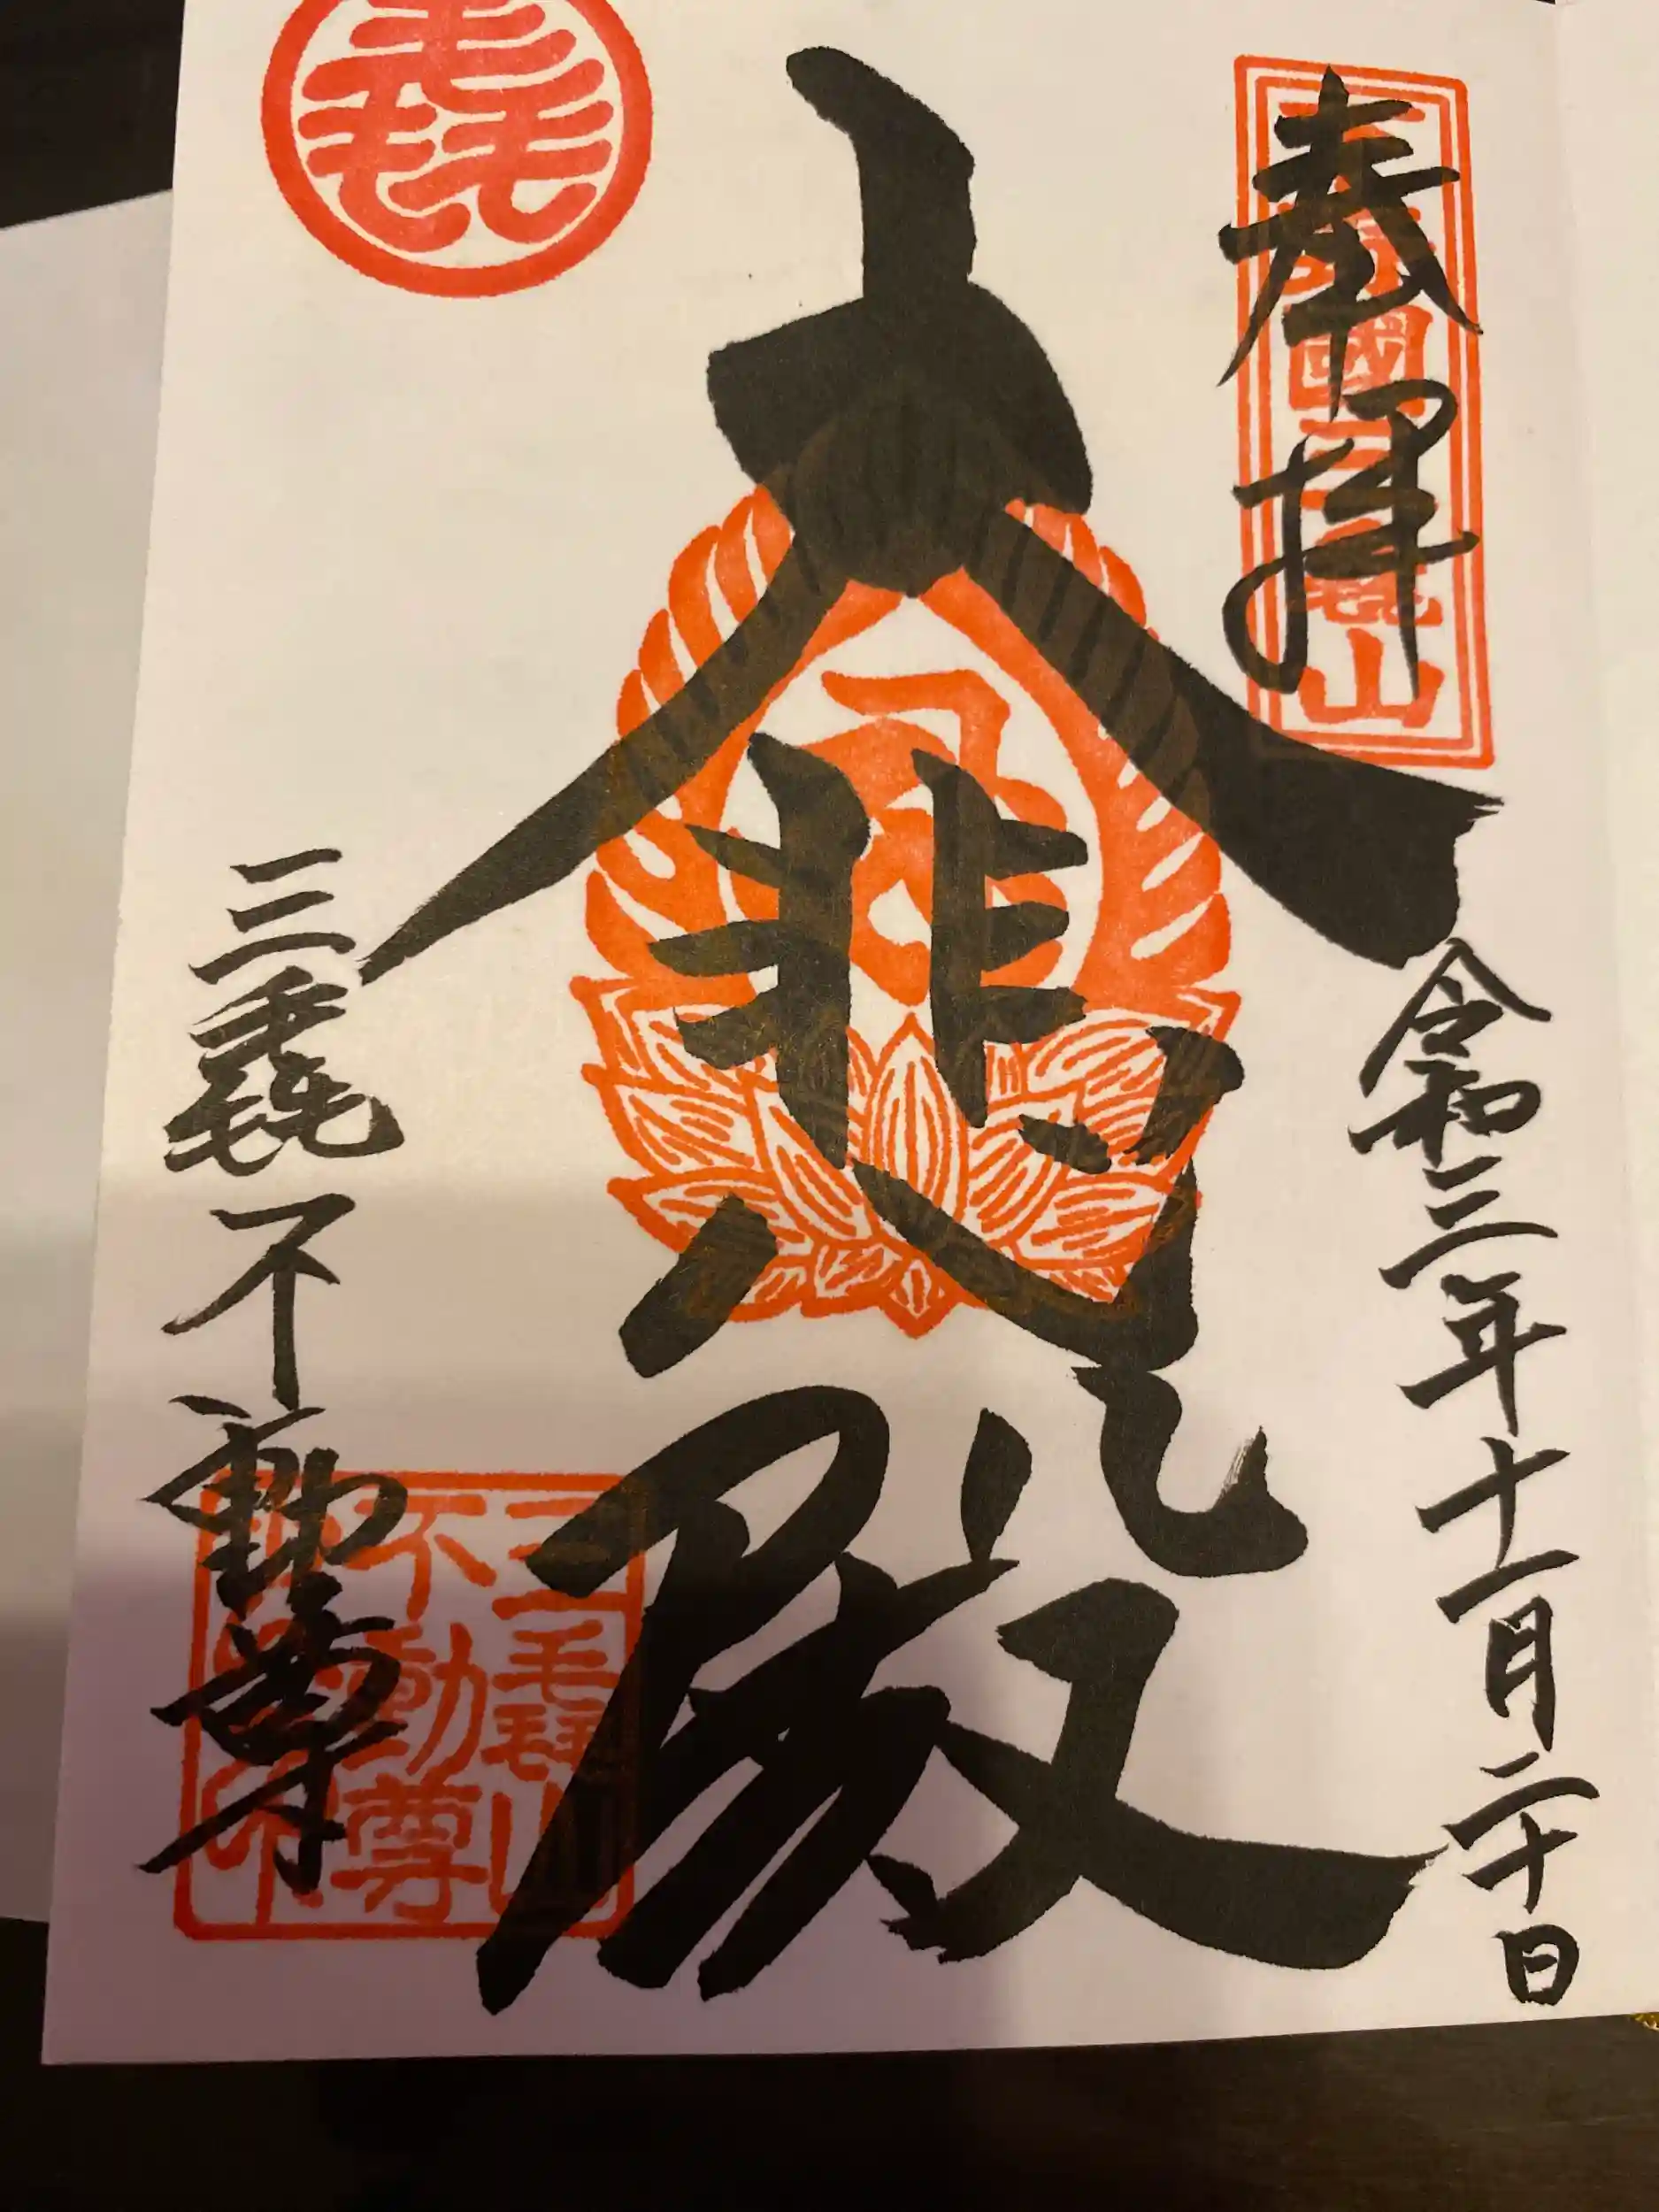 奉拝
令和三年十一月二十日
大悲殿
三毳不動尊
毳
三毳山
不動尊